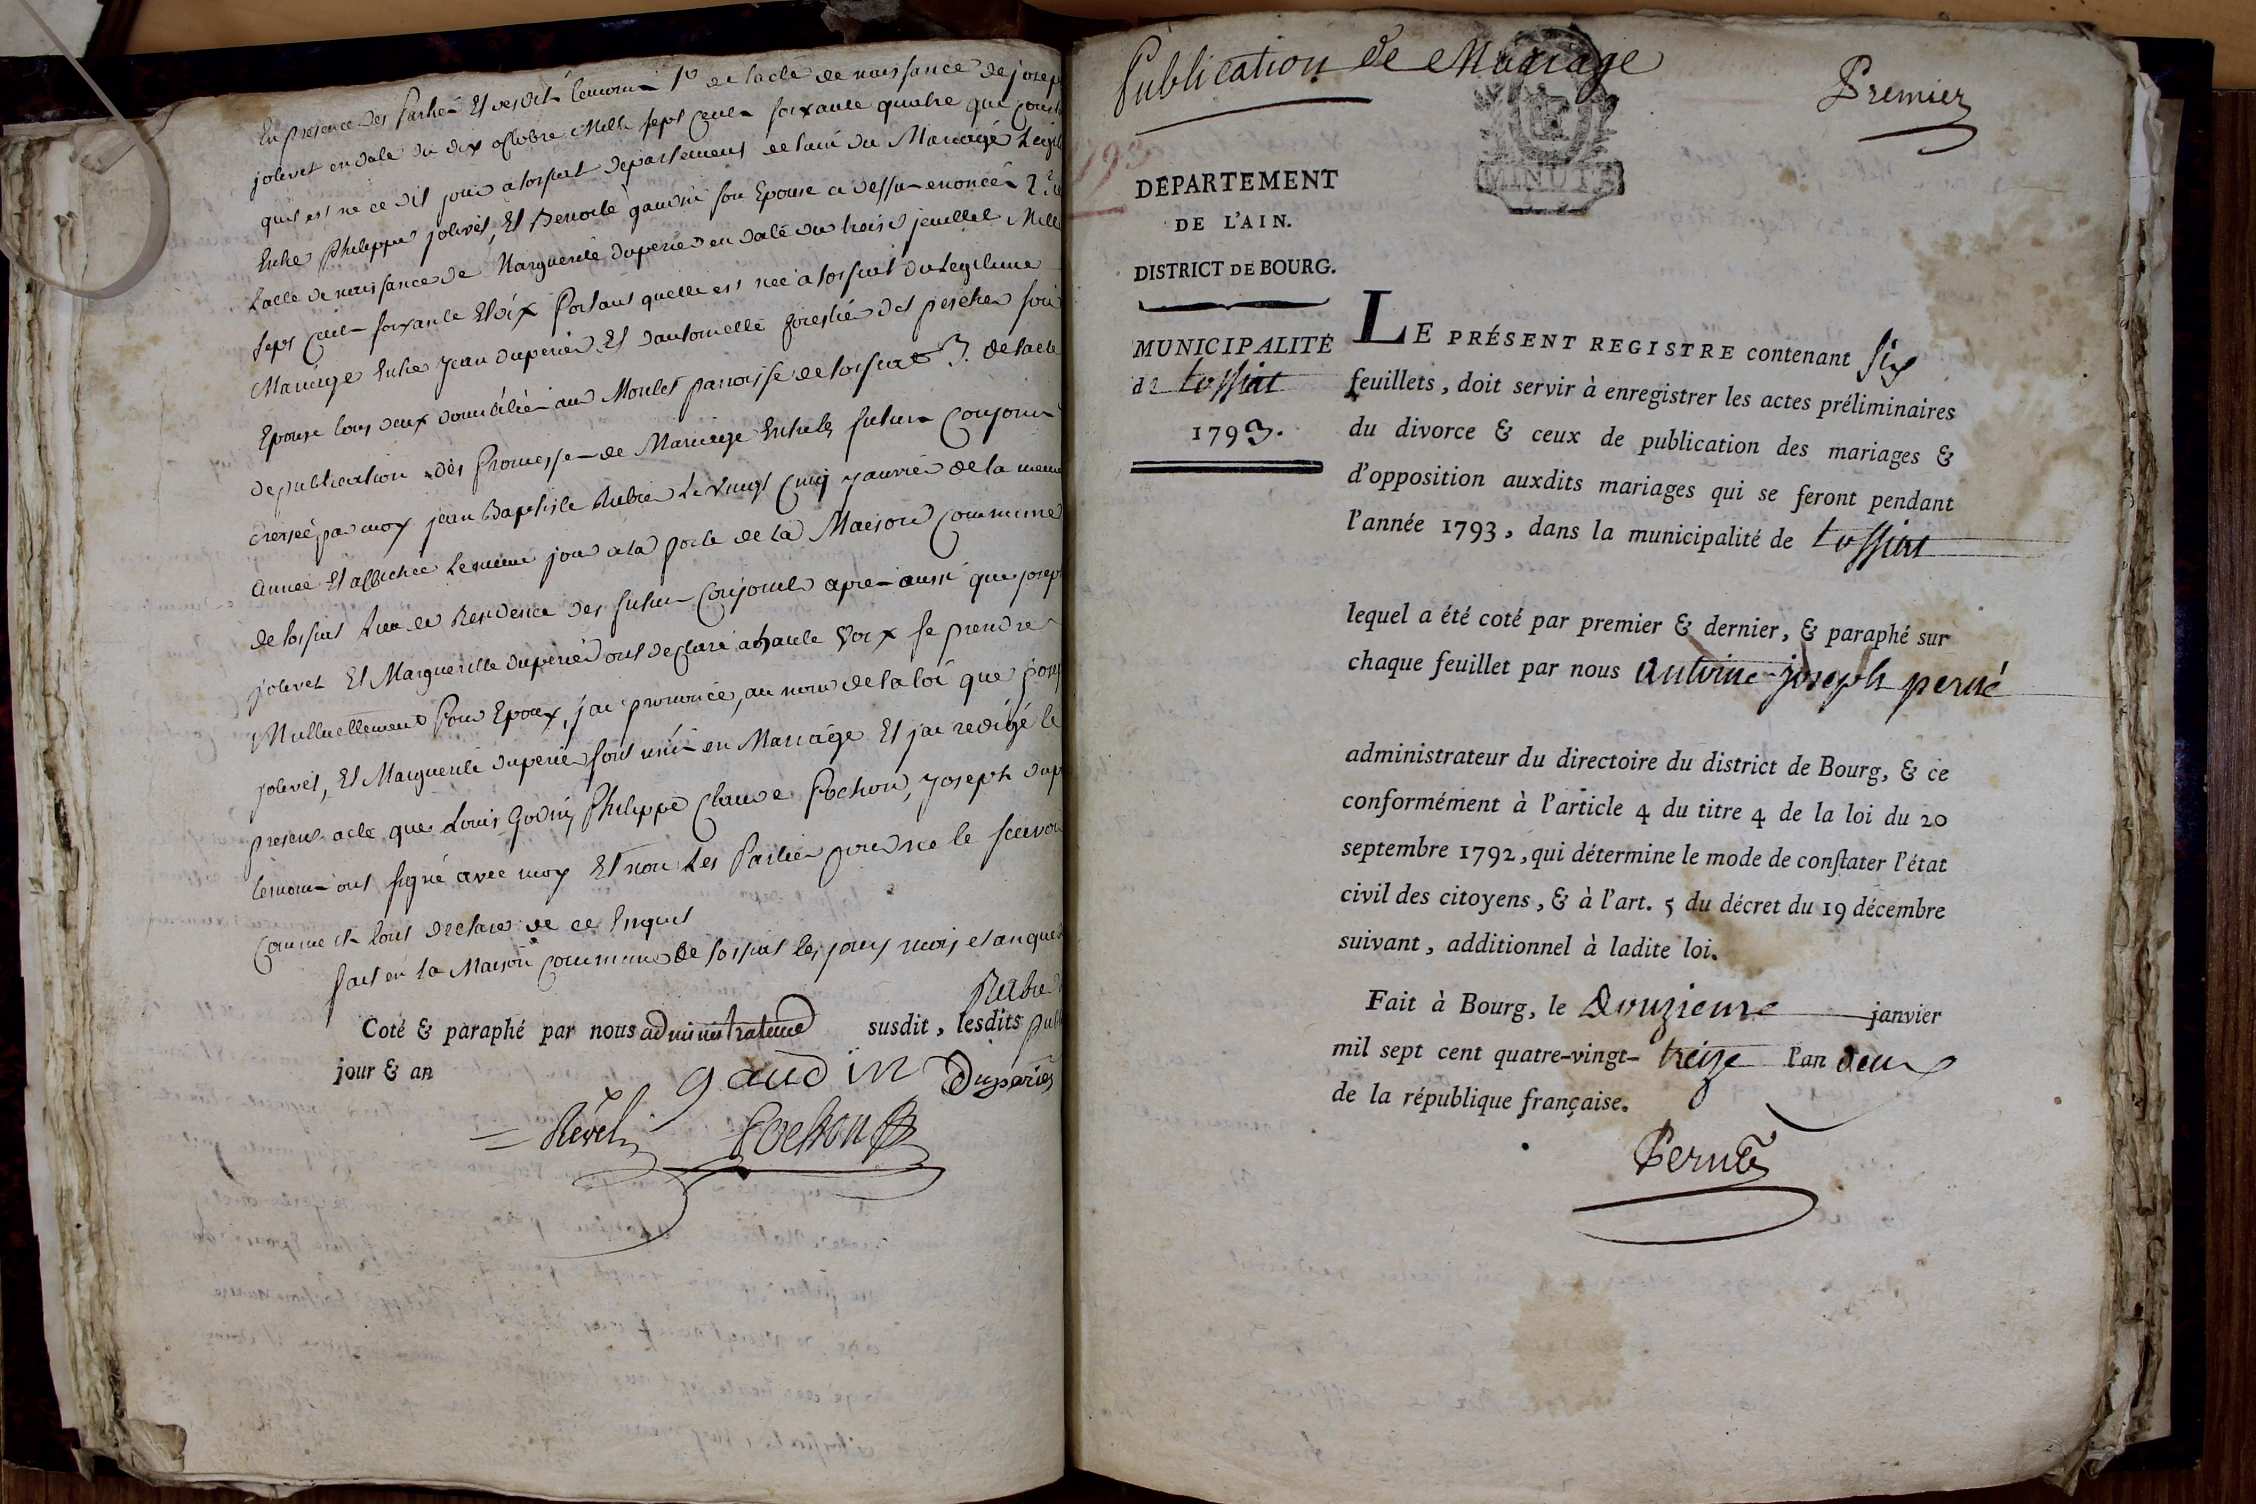 En presence des Parties Et desdits temoins 1º de lacte de naissance de josep
jolivet en date du dix octobre Mille sept Cent soixante quatre que
quil est né ce dit jour a tossiat departement de lain du Mariage Legit
Entre Philippe jolivet, Et Benoite gaudin son Epouse ci dessus enoncés 2º de
Lacte de naissance de Marguerite duperier en date du trois juillet Mille
sept Cent soixante Et dix Portant quelle est née a tossiat du Legitime
Mariage Entre jean duperier Et dantoinette forestier des perches son
Epouse tous deux domiciliés au Moulet parroisse de tossiat 3º de lacte
de publication des Promesses de Mariage Entre les futurs Conjoints
dressé par moy jean Baptiste Rubier Le vingt Cinq janvier de la meme
année Et affichée Le meme jour a la porte de la Maison Commune
de tossiat Lieu de Residence des futurs Conjoints apres aussi que josep
jolivet Et Marguerite duperier ont declaré a haute voix se prendre
Mutuellement Pour Epoux, j'ai prononcé, au nom de la loi que josep
jolivet, Et Marguerite duperier sont unis en Mariage Et j'ai redigé le
present acte que Louis Godin, Philippe Claude Pochon, joseph dup
temoins ont signé avec moy Et non Les Parties pour ne le scavoir
Comme ils lont declaré de ce Enquis
fait en la Maison Commune de tossiat les jours mois et an que
Rubier
Coté & paraphé par nous administrateur susdit, lesdits publ
jour & an
gaudin Duperier
Revel Pochon
Publication de Mariage
Premier
1793
MINUTE
DÉPARTEMENT
DE L'AIN.
DISTRICT DE BOURG.
MUNICIPALITÉ
de tossiat
1793.
LE PRÉSENT REGISTRE contenant six
feuillets, doit servir à enregistrer les actes préliminaires
du divorce & ceux de publication des mariages &
d'opposition auxdits mariages qui se feront pendant
l'année 1793, dans la municipalité de tossiat
lequel a été coté par premier & dernier, & paraphé sur
chaque feuillet par nous antoine joseph perné
administrateur du directoire du district de Bourg, & ce
conformément à l'article 4 du titre 4 de la loi du 20
septembre 1792, qui détermine le mode de conſtater l'état
civil des citoyens, & à l'art. 5 du décret du 19 décembre
suivant, additionnel à ladite loi.
Fait à Bourg, le douzieme janvier
mil sept cent quatre-vingt-treize l'an deux
de la république française.
Perné